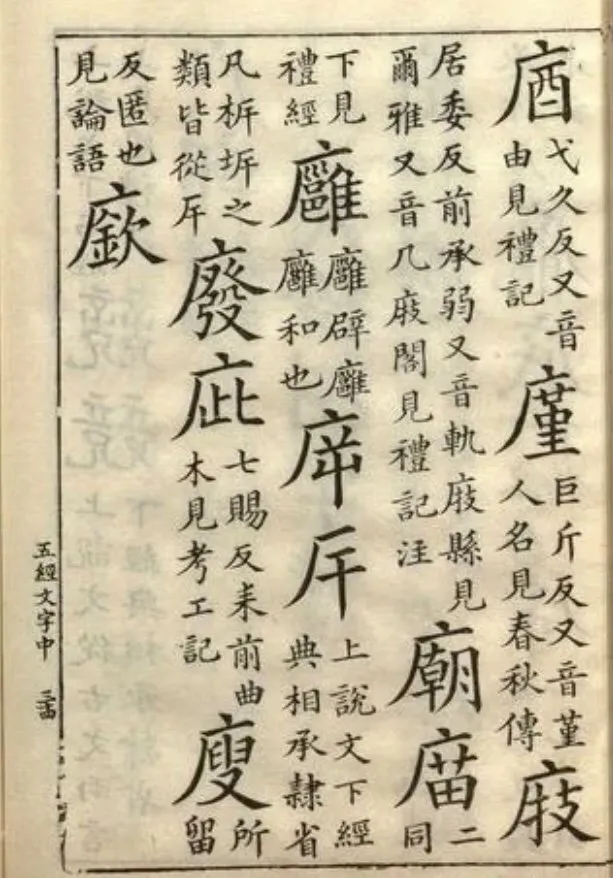 庮弋久反又音由見禮記廑巨斤反又音堇人名見春秋傳庪
居委反前承弱又音軌庪縣見爾雅又音几庪閣見禮記注廟庿二同
下見禮經廱廱辟廱廱和也㡿厈上說文下經典相承隸省
凡㭊坼之類皆從厈廢庛七賜反耒前曲木見考工記廋所留
反匿也見論語廞
五經文字中